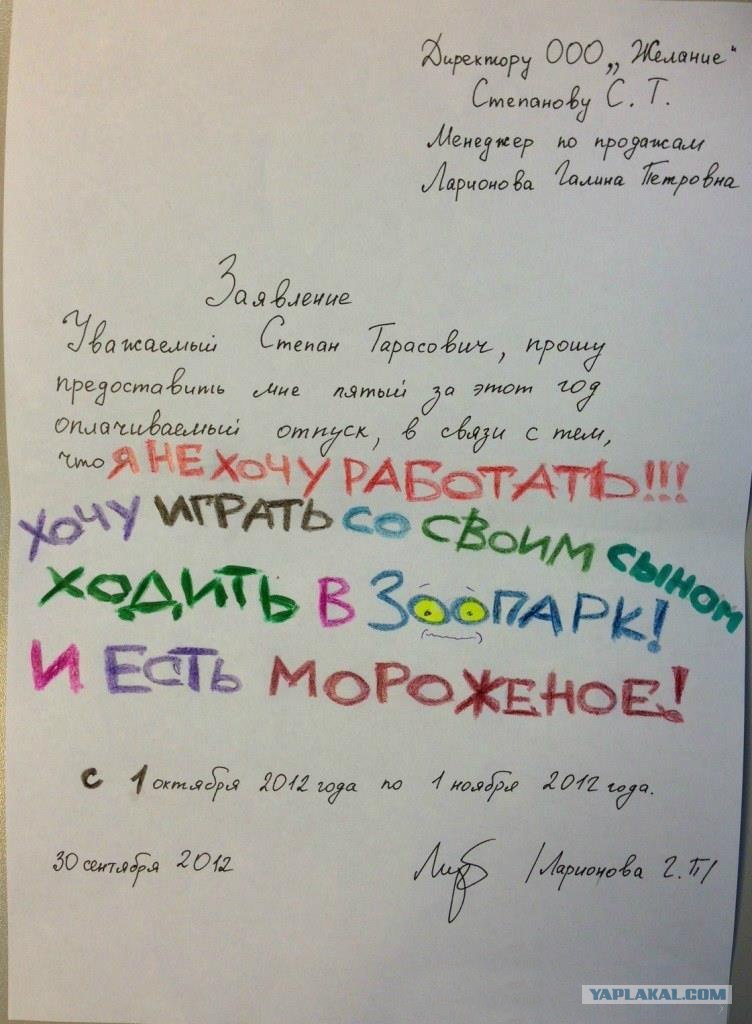 Директору ООО „Желание"
Степанову С. Т.
Менеджер по продажам
Ларионова Галина Петровна
Заявление
Уважаемый Степан Тарасович, прошу
предоставить мне пятый за этот год
оплачиваемый отпуск, в связи с тем,
что Я НЕ ХОЧУ РАБОТАТЬ!!!
ХОЧУ ИГРАТЬ СО СВОИМ СЫНОМ
ХОДИТЬ В ЗООПАРК!
И ЕСТЬ МОРОЖЕНОЕ!
с 1 октября 2012 года по 1 ноября 2012 года.
30 сентября 2012 /Ларионова Г.П/
YAPLAKAL.COM